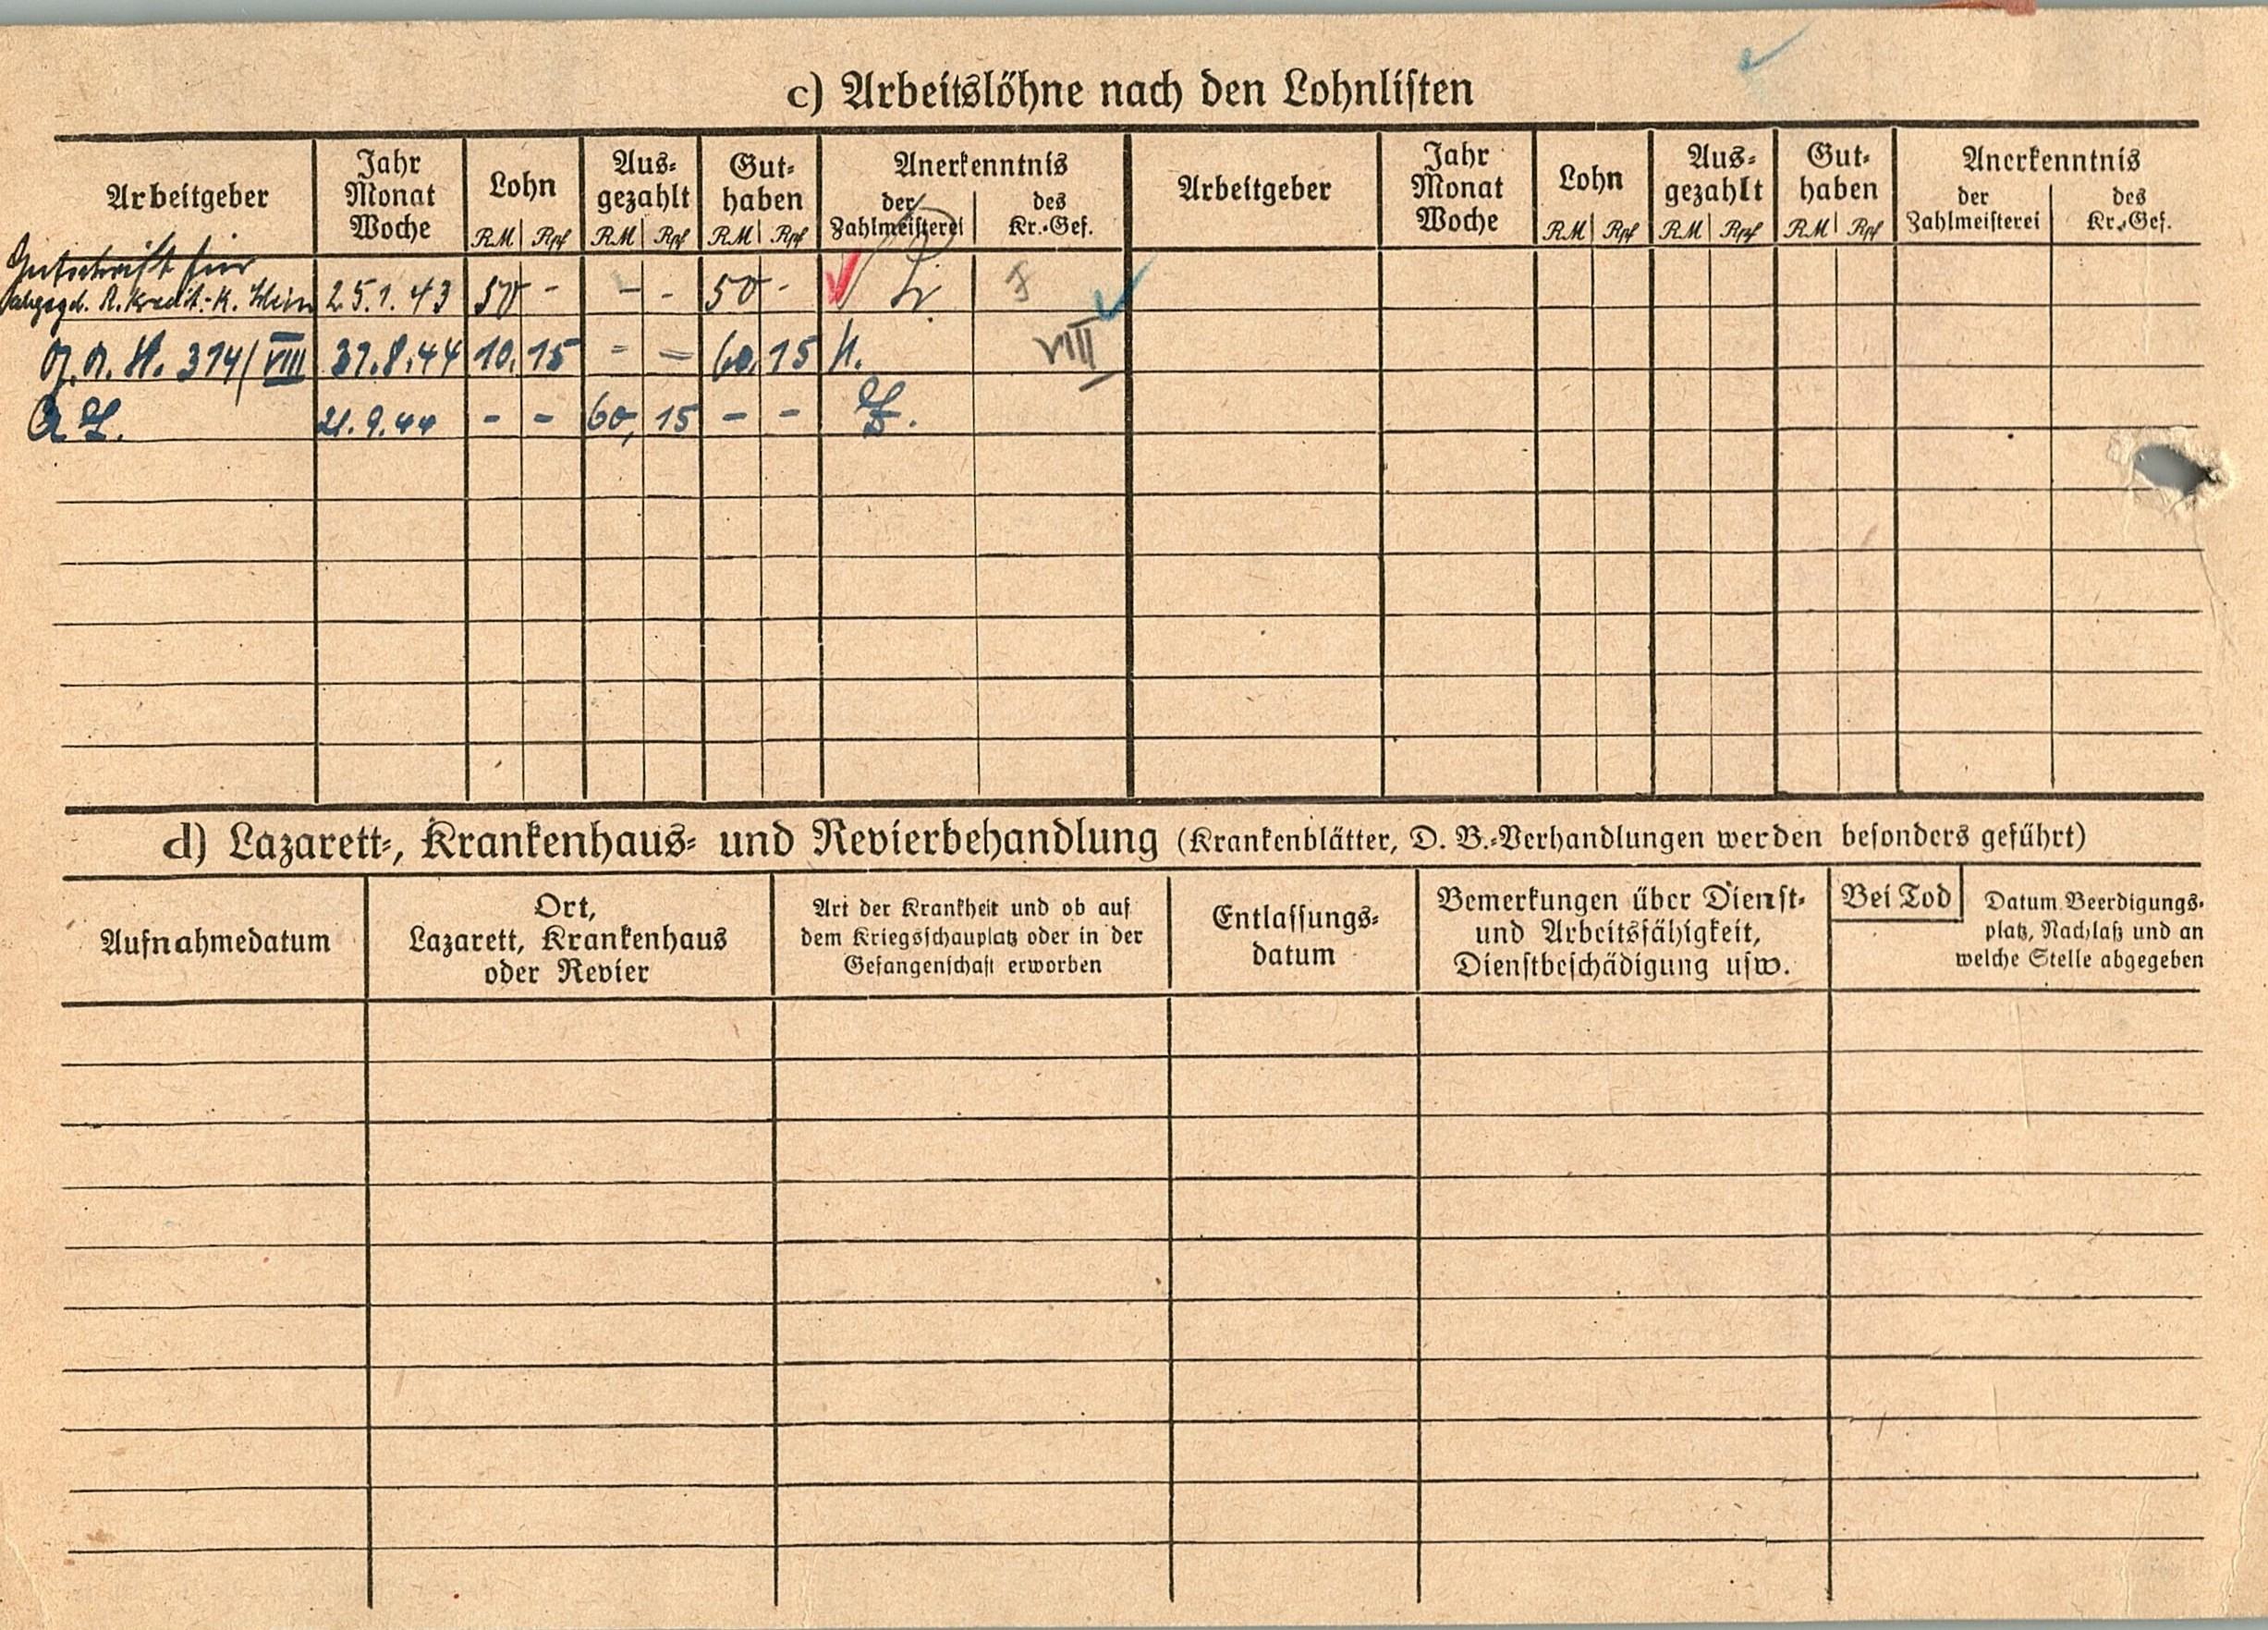 c) Arbeitslöhne nach den Lohnlisten
Arbeitgeber Jahr Monat Woche Lohn Aus- gezahlt Gut- haben Anerkenntnis der Zahlmeisterei des Kr.-Gef. Arbeitgeber Jahr Monat Woche Lohn Aus- gezahlt Gut- haben Anerkenntnis der Zahlmeisterei des Kr.-Gef.
RM Rpf RM Rpf RM Rpf RM Rpf RM Rpf RM Rpf
Gutschrift für
R. Kredit.-K. 25.1.43 50 - - - 50 -
374/VIII 31.8.44 10,15 - - 60,15 VIII
21.9.44 - - 60,15 - -
d) Lazarett-, Krankenhaus- und Revierbehandlung (Krankenblätter, D. B.-Verhandlungen werden besonders geführt)
Aufnahmedatum
Ort,
Lazarett, Krankenhaus
oder Revier
Art der Krankheit und ob auf
dem Kriegsschauplatz oder in der
Gefangenschaft erworben
Entlassungs-
datum
Bemerkungen über Dienst-
und Arbeitsfähigkeit,
Dienstbeschädigung usw.
Bei Tod
Datum Beerdigungs-
platz, Nachlaß und an
welche Stelle abgegeben